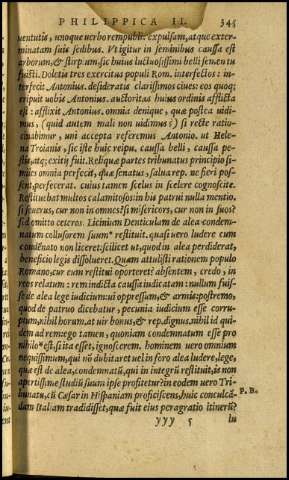 PHILIPPICA II. 345
uentutis, unoque uerbo rempubli: expulsam, atque exter-
minatam suis sedibus. Vt igitur in seminibus caussa est
arborum, & stirpium: sic huius luctuosissimi belli semen tu
fuisti. Doletis tres exercitus populi Rom. interfectos: in-
terfecit Antonius. desideratis clarissimos ciues: eos quoq;
eripuit uobis Antonius. auctoritas huius ordinis afflicta
est: afflixit Antonius. omnia denique, quæ postea uidi-
mus, (quid autem mali non uidimus?) si recte ratio-
cinabimur, uni accepta referemus Antonio. ut Hele-
na Troianis, sic iste huic reipu. caussa belli, caussa pe-
stis, atq; exitij fuit. Reliquæ partes tribunatus principio si-
miles omnia perfecit, quæ senatus, salua rep. ne fieri pos-
sent, perfecerat. cuius tamen scelus in scelere cognoscite.
Restituebat multos calamitosos: in his patrui nulla mentio.
si seuerus, cur non in omnes? si misericors, cur non in suos?
sed omitto ceteros. Licinium Denticulam de alea condem-
natum collusorem suum restituit. quasi uero ludere cum
condēnato non liceret: scilicet ut, quod in alea perdiderat,
beneficio legis dissolueret. Quam attulisti rationem populo
Romano, cur eum restitui oporteret? absentem, credo, in
reos relatum: rem indicta caussa iudicatam: nullum fuis-
se de alea lege iudicium: ui oppressum, & armis: postremo,
quod de patruo dicebatur, pecunia iudicium esse corru-
ptum. nihil horum. at uir bonus, & rep. dignus. nihil id qui-
dem ad rem: ego tamen, quoniam condemnatum esse pro
nihilo est, si ita esset, ignoscerem. hominem uero omnium
nequissimum, qui nō dubitaret uel in foro alea ludere, lege,
quæ est de alea, condemnatū, qui in integrū restituit, is non
apertissime studiū suum ipse profitetur? in eodem uero Tri-
bunatu, cū Cæsar in Hispaniam proficiscens, huic conculcā-
dam Italiam tradidisset, quæ fuit eius peragratio itinerū?
P. B.
yyy 5 lu